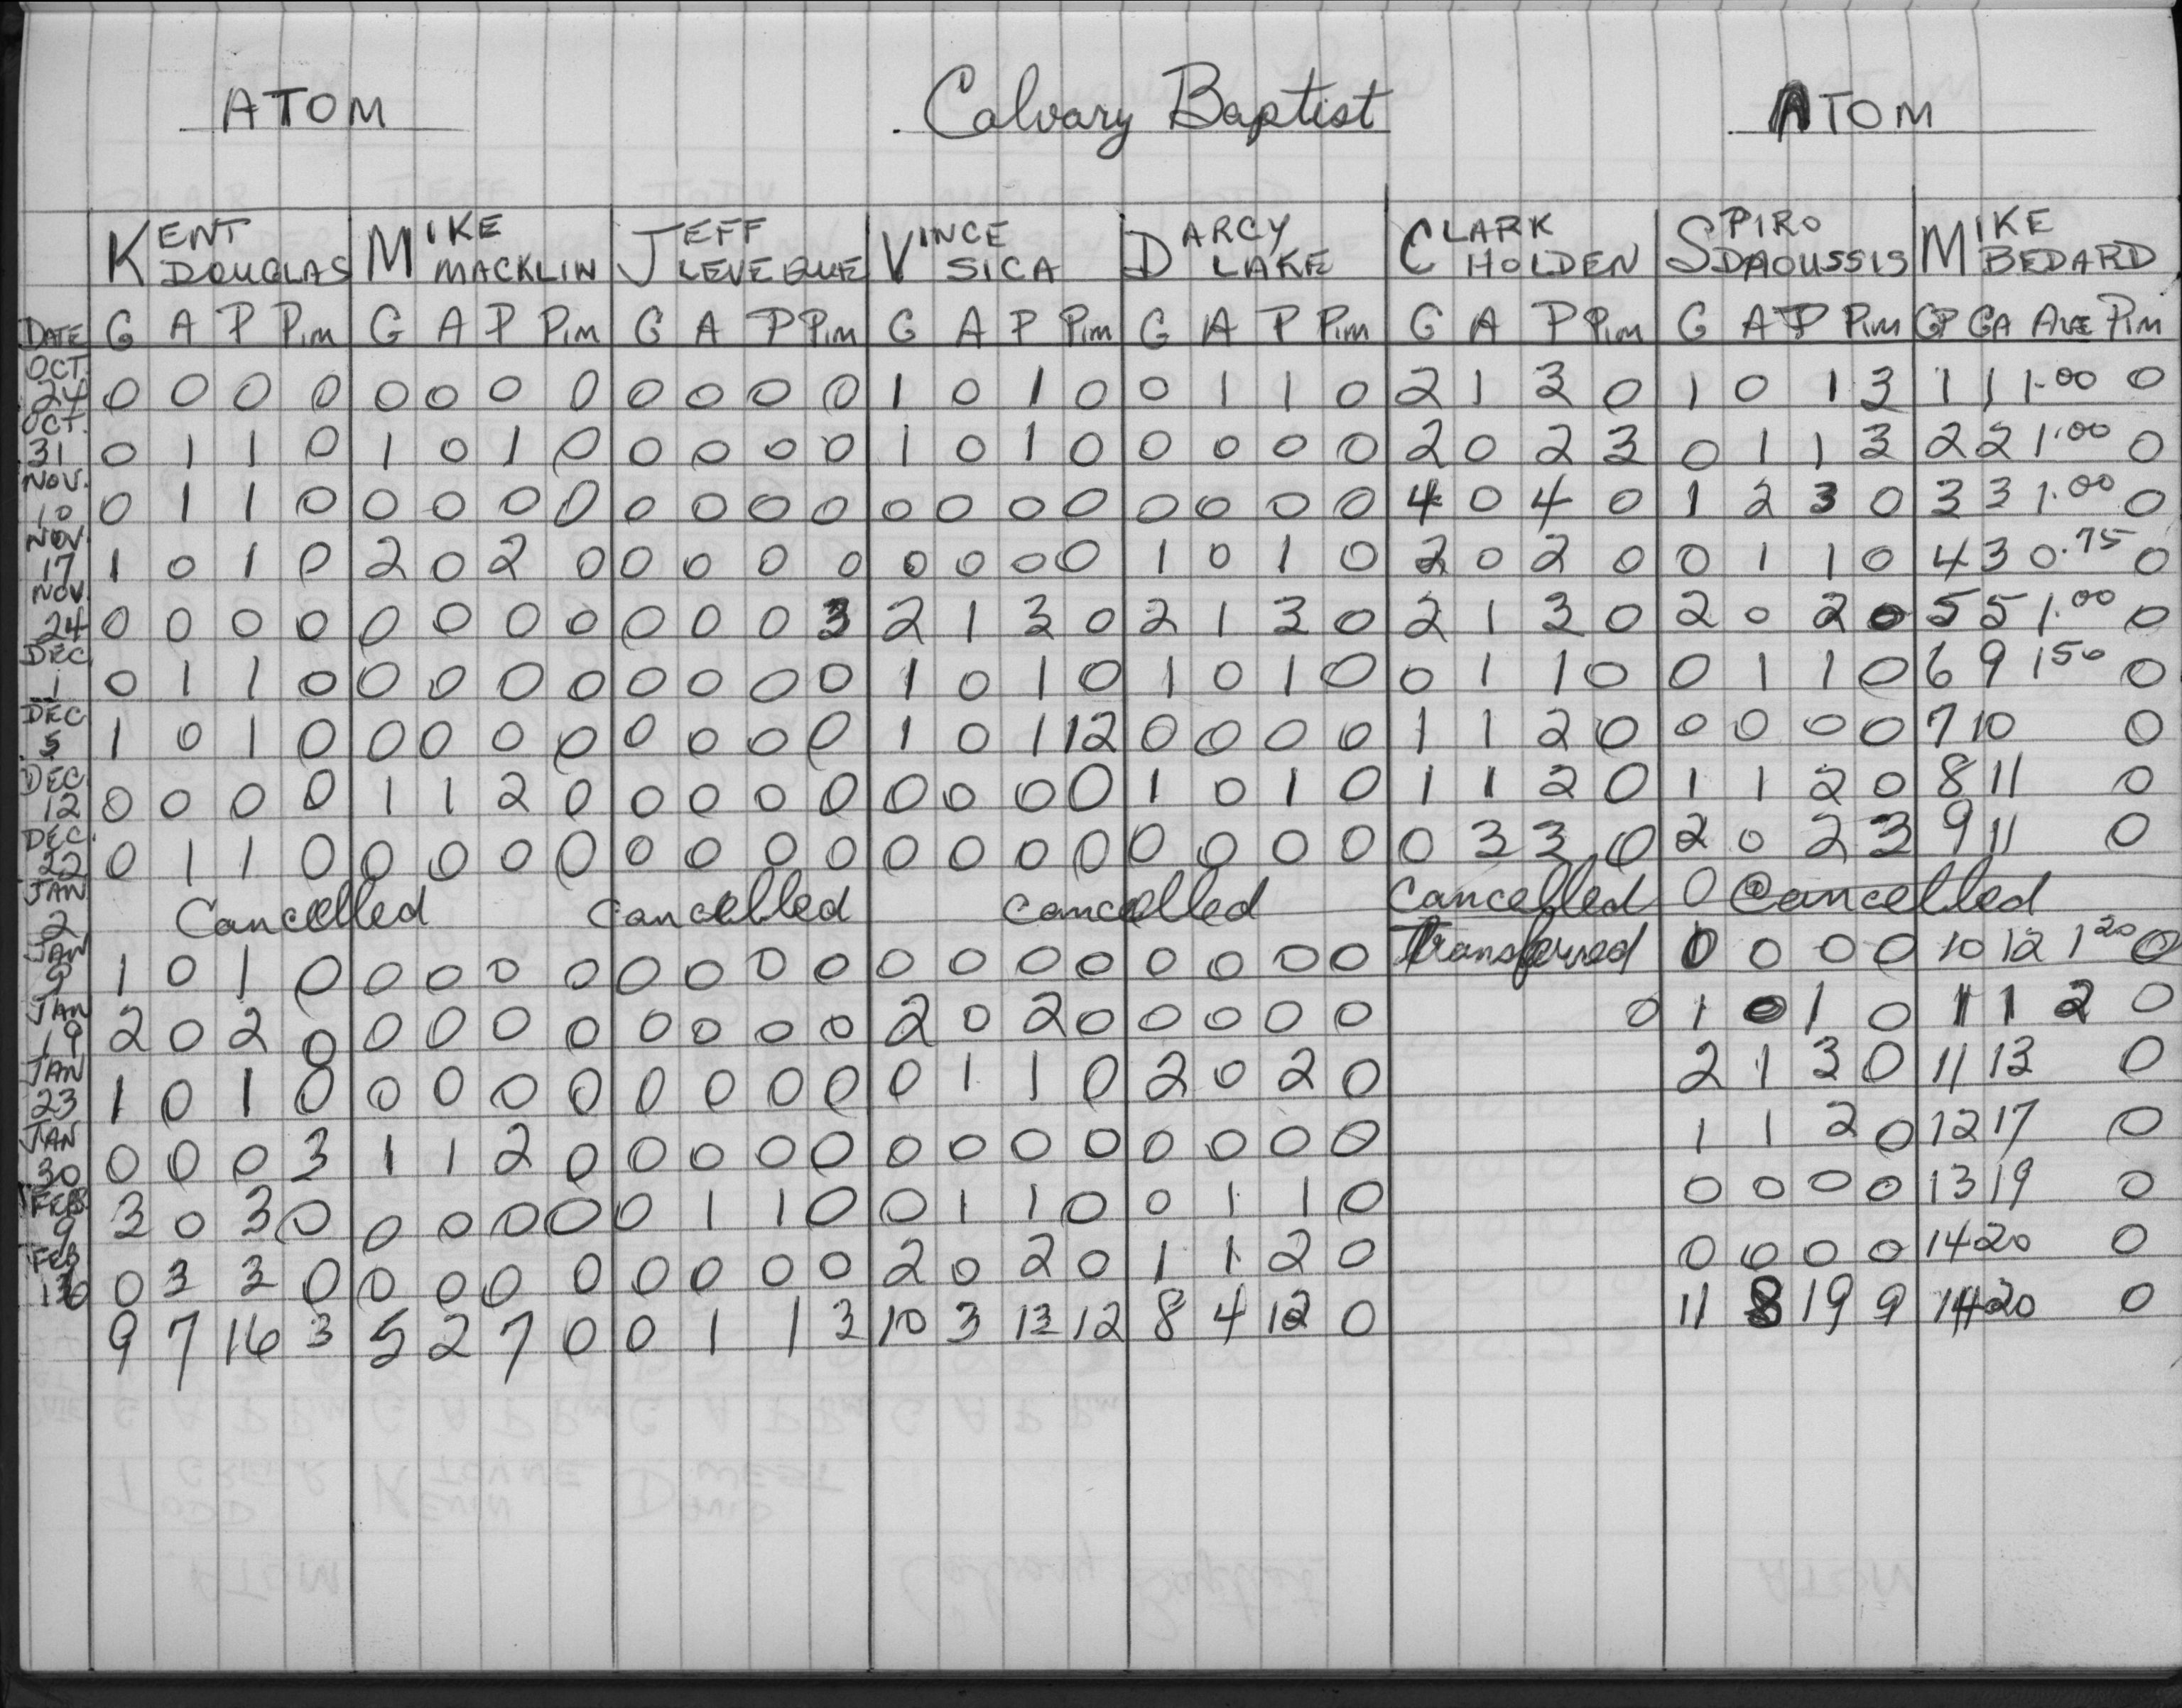 ATOM Calvary Baptist ATOM
KENT DOUGLAS MIKE MACKLIN JEFF LEVEQUE VINCE SICA DARCY LAKE CLARK HOLDEN SPIRO DAOUSSIS MIKE BEDARD
DATE G A P Pim G A P Pim G A P Pim G A P Pim G A P Pim G A P Pim G A P Pim GP GA AVE Pim
OCT. 24 0 0 0 0 0 0 0 0 0 0 0 0 1 0 1 0 0 1 1 0 2 1 3 0 1 0 1 3 1 1 1.00 0
OCT. 31 0 1 1 0 1 0 1 0 0 0 0 0 1 0 1 0 0 0 0 0 2 0 2 3 0 1 1 3 2 2 1.00 0
NOV. 10 0 1 1 0 0 0 0 0 0 0 0 0 0 0 0 0 0 0 0 0 4 0 4 0 1 2 3 0 3 3 1.00 0
NOV. 17 1 0 1 0 2 0 2 0 0 0 0 0 0 0 0 0 1 0 1 0 2 0 2 0 0 1 1 0 4 3 0.75 0
NOV. 24 0 0 0 0 0 0 0 0 0 0 0 3 2 1 3 0 2 1 3 0 2 1 3 0 2 0 2 0 5 5 1.00 0
DEC 1 0 1 1 0 0 0 0 0 0 0 0 0 1 0 1 0 1 0 1 0 0 1 1 0 0 1 1 0 6 9 1 50 0
DEC 5 1 0 1 0 0 0 0 0 0 0 0 0 1 0 1 12 0 0 0 0 1 1 2 0 0 0 0 0 7 10 0
DEC 12 0 0 0 0 1 1 2 0 0 0 0 0 0 0 0 0 1 0 1 0 1 1 2 0 1 1 2 0 8 11 0
DEC. 22 0 1 1 0 0 0 0 0 0 0 0 0 0 0 0 0 0 0 0 0 0 3 3 0 2 0 2 3 9 11 0
JAN 2 Cancelled Cancelled Cancelled Cancelled 0 Cancelled
JAN 9 1 0 1 0 0 0 0 0 0 0 0 0 0 0 0 0 0 0 0 0 Transferred 0 0 0 0 10 12 1 20 0
JAN 19 2 0 2 0 0 0 0 0 0 0 0 0 2 0 2 0 0 0 0 0 0 1 0 1 0 11 2 0
JAN 23 1 0 1 0 0 0 0 0 0 0 0 0 0 1 1 0 2 0 2 0 2 1 3 0 11 13 0
JAN 30 0 0 0 3 1 1 2 0 0 0 0 0 0 0 0 0 0 0 0 0 1 1 2 0 12 17 0
FEB 9 3 0 3 0 0 0 0 0 0 1 1 0 0 1 1 0 0 1 1 0 0 0 0 0 13 19 0
FEB 0 3 3 0 0 0 0 0 0 0 0 0 2 0 2 0 1 1 2 0 0 0 0 0 14 20 0
9 7 16 3 5 2 7 0 0 1 1 3 10 3 13 12 8 4 12 0 11 8 19 9 14 20 0